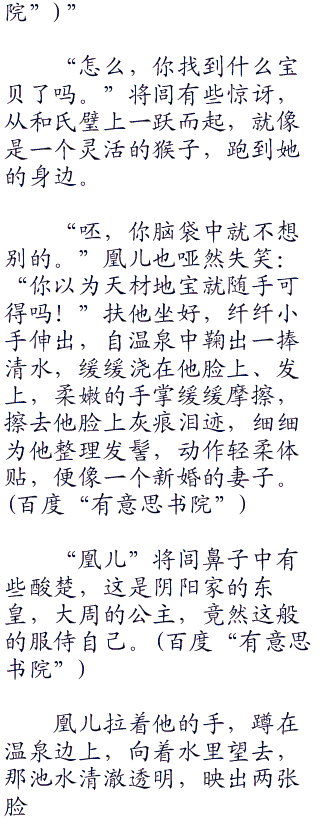 院”)”
“怎么，你找到什么宝
贝了吗。”将闾有些惊讶，
从和氏璧上一跃而起，就像
是一个灵活的猴子，跑到她
的身边。
“呸，你脑袋中就不想
别的。”凰儿也哑然失笑：
“你以为天材地宝就随手可
得吗！”扶他坐好，纤纤小
手伸出，自温泉中鞠出一捧
清水，缓缓浇在他脸上、发
上，柔嫩的手掌缓缓摩擦，
擦去他脸上灰痕泪迹，细细
为他整理发髻，动作轻柔体
贴，便像一个新婚的妻子。
(百度“有意思书院”)
“凰儿”将闾鼻子中有
些酸楚，这是阴阳家的东
皇，大周的公主，竟然这般
的服侍自己。(百度“有意思
书院”)
凰儿拉着他的手，蹲在
温泉边上，向着水里望去，
那池水清澈透明，映出两张
脸